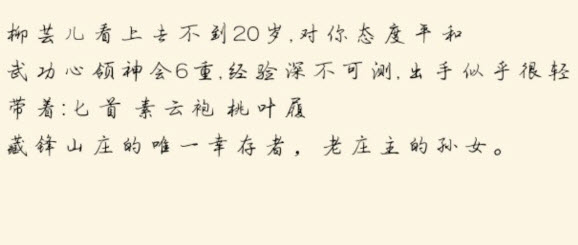 柳芸儿看上去不到20岁,对你态度平和
武功心领神会6重,经验深不可测,出手似乎很轻
带着:匕首 素云袍 桃叶履
藏锋山庄的唯一幸存者，老庄主的孙女。